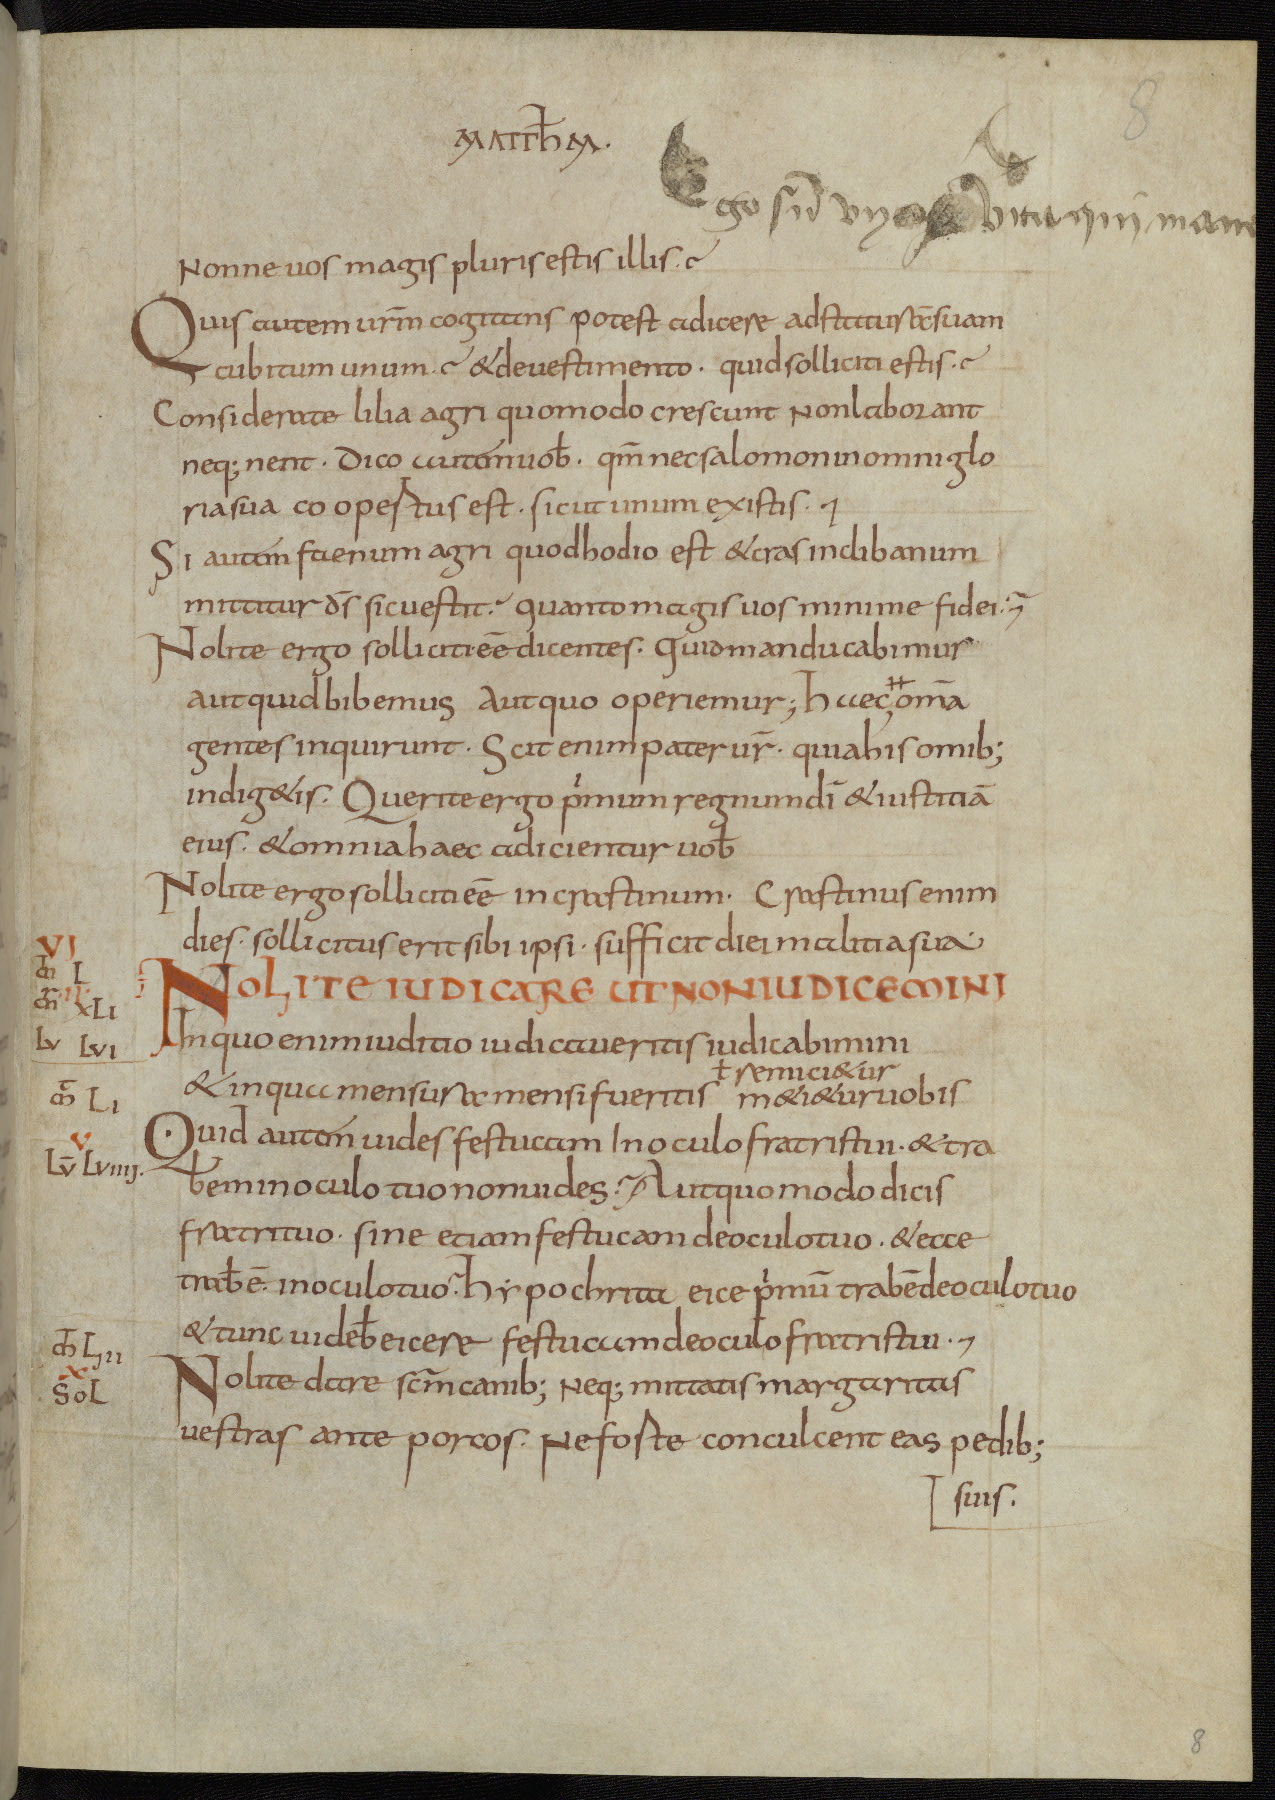 8
MATTH̄M.
Ego sū vy vita qui mane
Nonne uos magis pluris estis illis.
Quis autem ur̄m cogitans potest adicere ad staturā suam
cubitum unum. & de uestimento. quid solliciti estis.
Considerate lilia agri quomodo crescunt Non laborant
neq; nent. Dico autem uob̄. qm̄ nec salomon in omni glo
ria sua coopertus est. sicut unum ex istis.
Si autem faenum agri quod hodie est & cras in clibanum
mittitur d̄s sic uestit. quanto magis uos minime fidei.
Nolite ergo solliciti eē dicentes. Quid manducabimur
aut quid bibemus Aut quo operiemur; haec om̄a
gentes inquirunt. Scit enim pater ur̄. quia his omib;
indig&is. Querite ergo p̍mum regnum dī & iustitiā
eius. & omnia haec adicientur uob̄
Nolite ergo solliciti eē in crastinum. Crastinus enim
dies. sollicitus erit sibi ipsi. sufficit diei malitia sua
VI
NOLITE IUDICARE UT NON IUDICEMINI
L
XLI
In quo enim iuditio iudicaueritis iudicabimini
LV LVI
remici&ur
& in qua mensura mensi fueritis m&i&ur uobis
LI
Quid autem uides festucam In oculo fratris tui. & tra
V
LV LVIIII.
bem in oculo tuo non uides. Aut quomodo dicis
fratri tuo. sine etiam festucam de oculo tuo. & ecce
trab̄ē. in oculo tuo. hypochrita eice p̍mū trabē de oculo tuo
& tunc uideb̄ eicere festucam de oculo fratris tui.
LIII
X
Nolite dare sc̄m canib; Neq; mittatis margaritas
S̄OL
uestras ante porcos. Ne forte conculcent eas pedib;
suis.
8